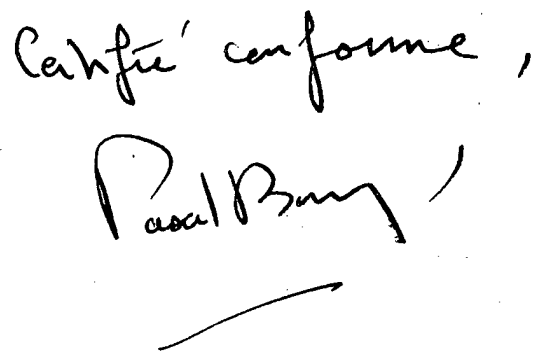 Certifié conforme,
Pascal